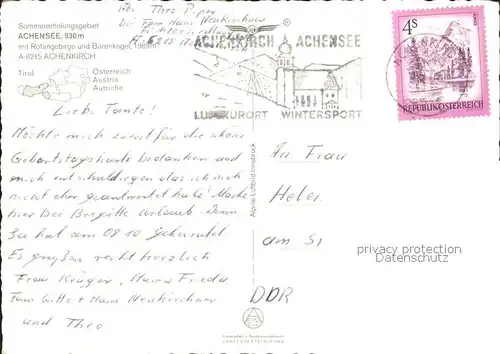 Sommererholungsgebiet
ACHENSEE, 930 m
mit Rofangebirge und Bärenkogel, 1989m
A-6215 ACHENKIRCH
Tirol
Österreich
Austria
Autriche
Abs. Theo
bei Fam. Hans Neukirchner
A 6215
ACHENKIRCH ACHENSEE
LUFTKURORT WINTERSPORT
4S
REPUBLIK ÖSTERREICH
Lieb. Tante!
Möchte mich zuerst für die schöne
Geburtstagskarte bedanken und
mich entschuldigen das ich mich
nicht eher geantwortet habe Mache
hier bei Brigitte Urlaub. Denn
Sie hat am 08.10 geheiratet
Es grüßen recht herzlich
Frau Krüger, Mama Frieda
Fam Gitte + Hans Neukirchner
und Theo
Alpine Luftbild Innsbruck
An Frau
Helen
am
DDR
privacy protection
AnsichtskartenDSWK